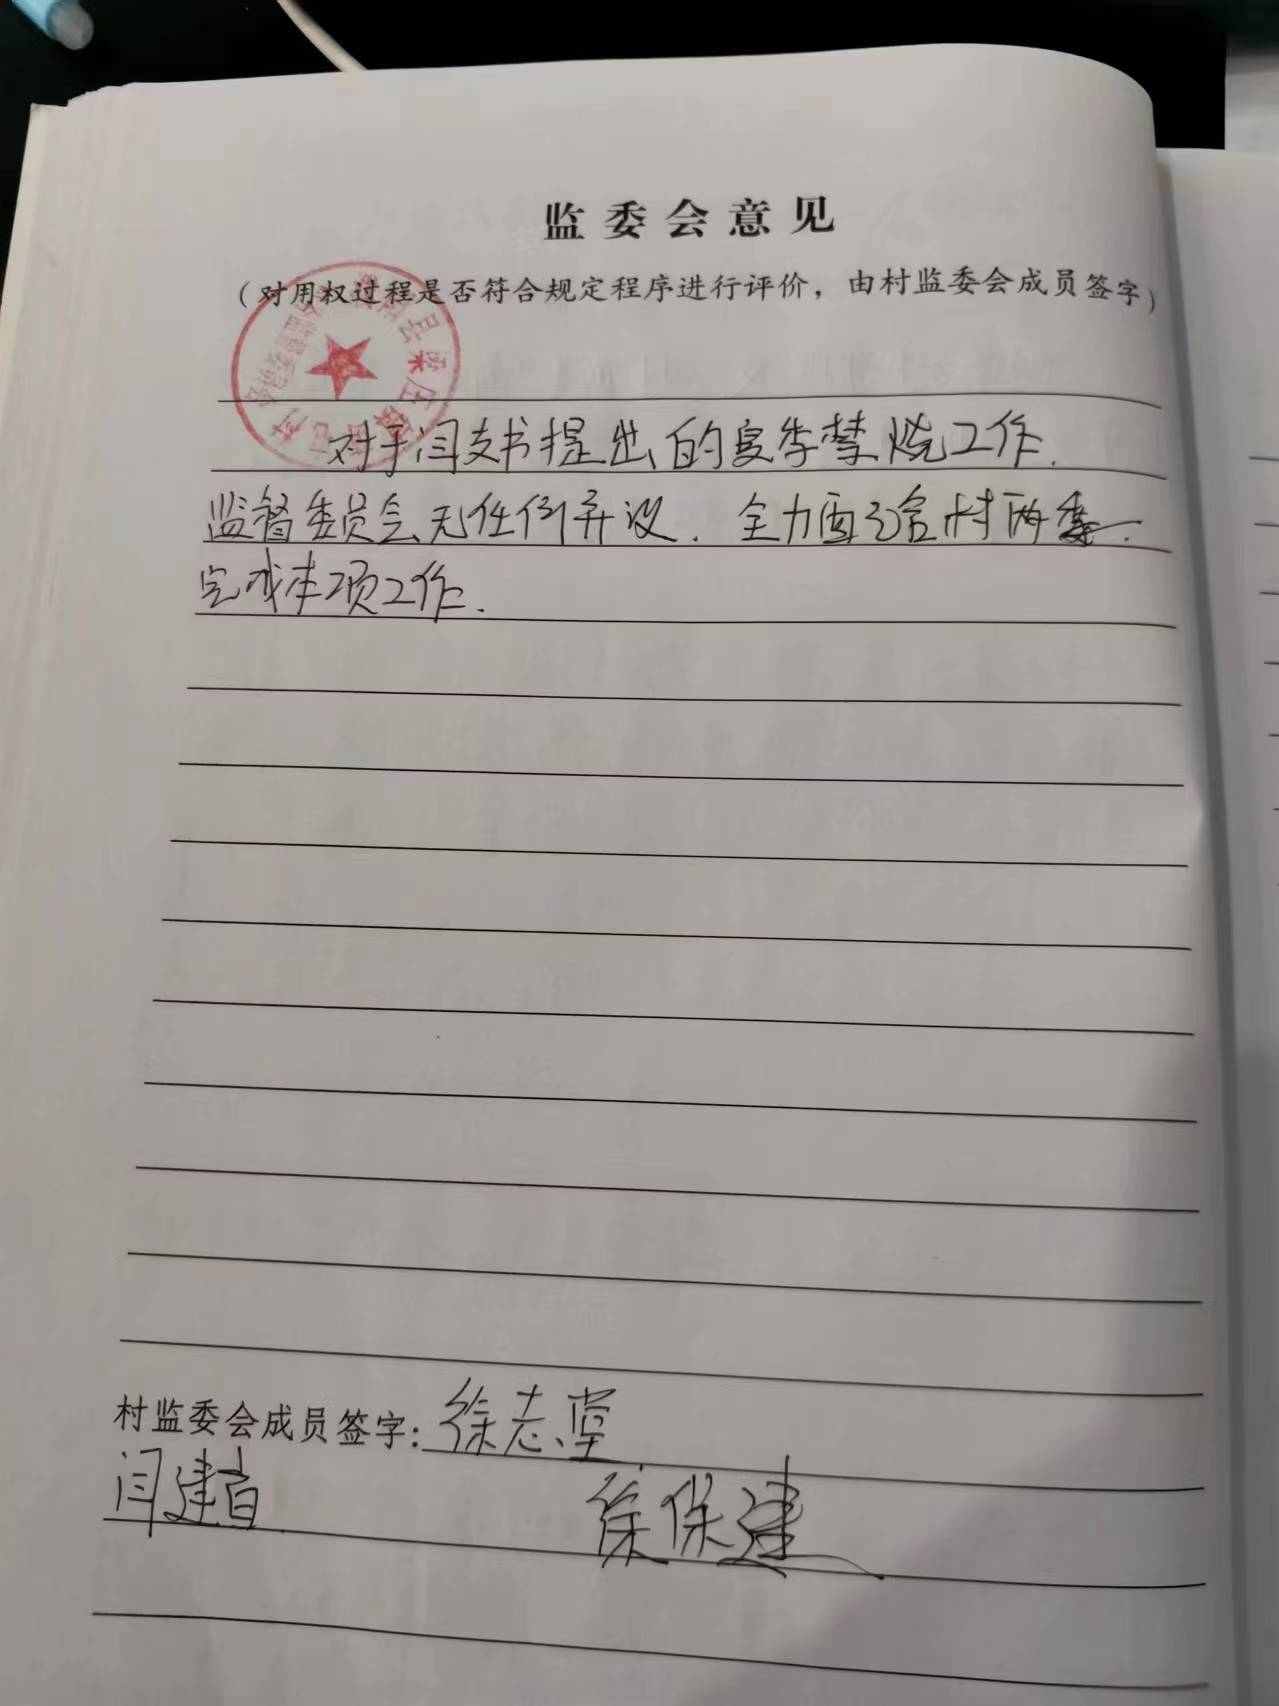 监委会意见
（对用权过程是否符合规定程序进行评价，由村监委会成员签字）
对于闫支书提出的夏季禁烧工作.
监督委员会无任何异议. 全力配合村两委
完成本项工作.
村监委会成员签字：徐志堂
闫建
徐保建